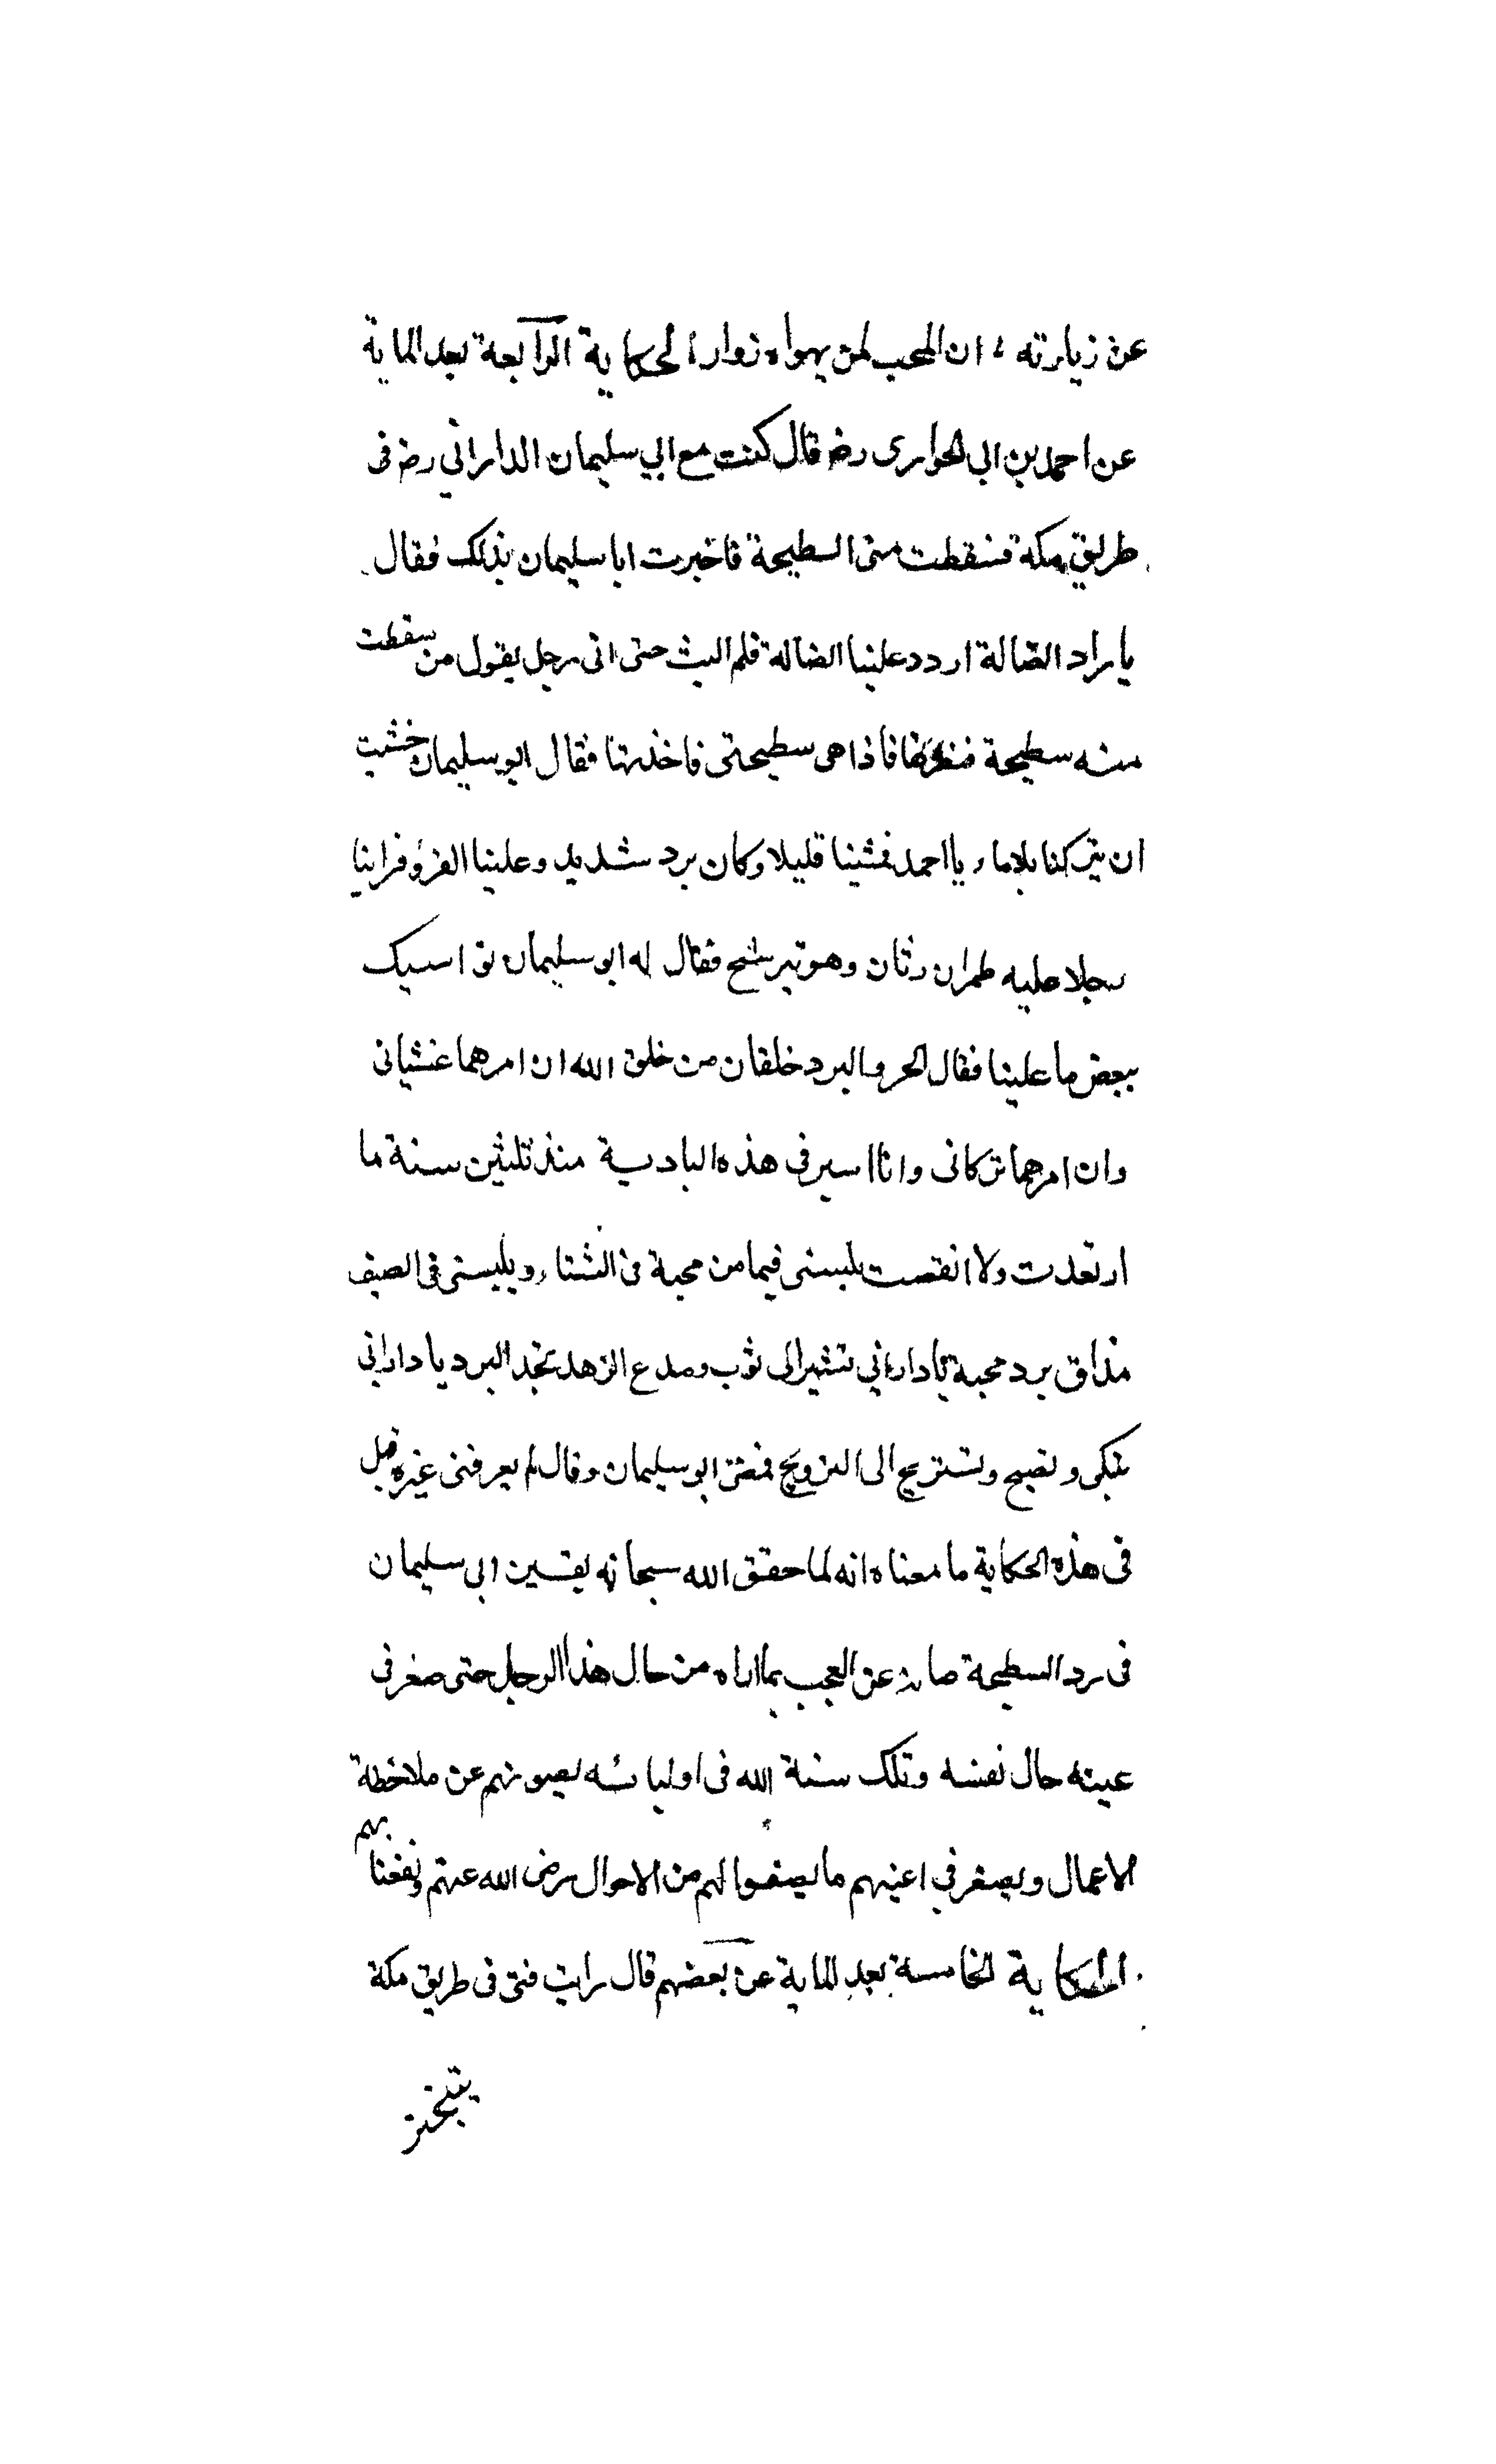 عن زيارته ، ان المحب لمن يهواه زوار ، الحكاية الرابعة بعد الماية
عن احمد بن ابي الحوارى رضه قال كنت مع ابي سليمان الداراني رضه فى
طريق مكة فسقطت منى السطيحة فاخبرت ابا سليمان بذلك فقال
يا راد الضالة اردد علينا الضالة فلم البث حتى اتى رجل يقول من سقطت
منه سطيحة فنظرتها فاذا هى سطيحتى فاخذتها فقال ابو سليمان خشيت
ان يتركنا بلا ماء يا احمد فمشينا قليلا وكان برد شديد وعلينا الفرو فراينا
رجلا عليه طمران رثان وهو يترشح فقال له ابو سليمان نواسيك
ببعض ما علينا فقال الحر والبرد خلقان من خلق الله ان امرهما غشيانى
وان امرهما تركانى وانا اسير فى هذه البادية منذ ثلثين سنة ما
ارتعدت ولا انتفضت يلبسنى فيما من محبة فى الشتاء ويلبسنى فى الصيف
مذاق برد محبة يا داراني تشير الى ثوب وتدع الزهد تجد البرد يا داراني
تبكى وتصيح وتستريح الى التزويج فمضى ابو سليمان وقال لم يعرفنى غيره قيل
فى هذه الحكاية ما معناه انه لما حقق الله سبحانه يقين ابى سليمان
فى رد السطيحة صانه عن العجب بما اراه من حال هذا الرجل حتى صغر فى
عينه حال نفسه وتلك سنة الله فى اوليائه يصونهم عن ملاحظة
الاعمال ويصغر في اعينهم ما يصفوا لهم من الاحوال رضى الله عنهم ونفعنا بهم
الحكاية الخامسة بعد الماية عن بعضهم قال رايت فتى فى طريق مكة
يتبختر